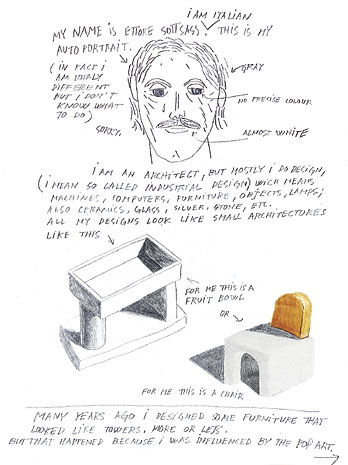 I AM ITALIAN
MY NAME IS ETTORE SOTTSASS. THIS IS MY
AUTOPORTRAIT.
(IN FACT I
AM TOTALLY
DIFFERENT
BUT I DON'T
KNOW WHAT
TO DO)
SORRY.
GRAY
NO PRECISE COLOUR
ALMOST WHITE
I AM AN ARCHITECT, BUT MOSTLY I DO DESIGN,
(I MEAN SO CALLED INDUSTRIAL DESIGN) WICH MEANS
MACHINES, COMPUTERS, FURNITURE, OBJECTS, LAMPS;
ALSO CERAMICS, GLASS, SILVER, STONE, ETC.
ALL MY DESIGNS LOOK LIKE SMALL ARCHITECTURES
LIKE THIS
FOR ME THIS IS A
FRUIT BOWL
OR
FOR ME THIS IS A CHAIR
MANY YEARS AGO I DESIGNED SOME FURNITURE THAT
LOOKED LIKE TOWERS, MORE OR LESS.
BUT THAT HAPPENED BECAUSE I WAS INFLUENCED BY THE POP ART.